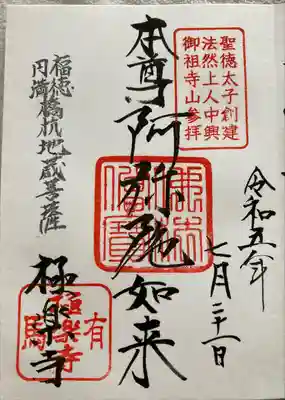 聖徳太子創建
法然上人中興
御祖寺山参拝
令和五年
七月二十一日
本尊阿弥陀如来
佛法僧寶
福徳
円満橋杭地蔵菩薩
極楽寺
有馬
極楽寺